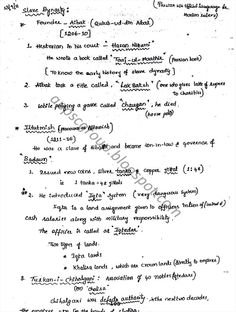 Slave Dynasty:
(Persian was official language for
Muslim rulers)
* Founder - Aibak (Qutub-ud-din Aibak)
[1206-10]
1. Historian in his court - Hasan Nizami
He wrote a book called "Taj-ul-maathir" (Persian book)
[To know the early history of slave dynasty]
2. Aibak took a title called, "Lak Baksh" (one who gives lakhs of rupees
to charities)
3. While playing a game called "Chaugan", he died.
(horse polo)
* Iltutmish
(1211-36)
He was a slave of Aibak and became son-in-law & governor of
Badaun.
1. Issued new coins, silver tanka & copper Jital (1:48)
1 tanka = 48 jitals
2. He introduced Iqta system (very dangerous system)
Iqta is a land assignment given to officers in lieu of
cash salaries along with military responsibility.
The officer is called as "Iqtadar".
Two types of lands
* Iqta lands
* Khalisa lands, which are crown lands (directly to empire)
3. Turkan-i-Chihalgani: Association of 40 nobles
Chihalgani was defacto authority in the next two decades,